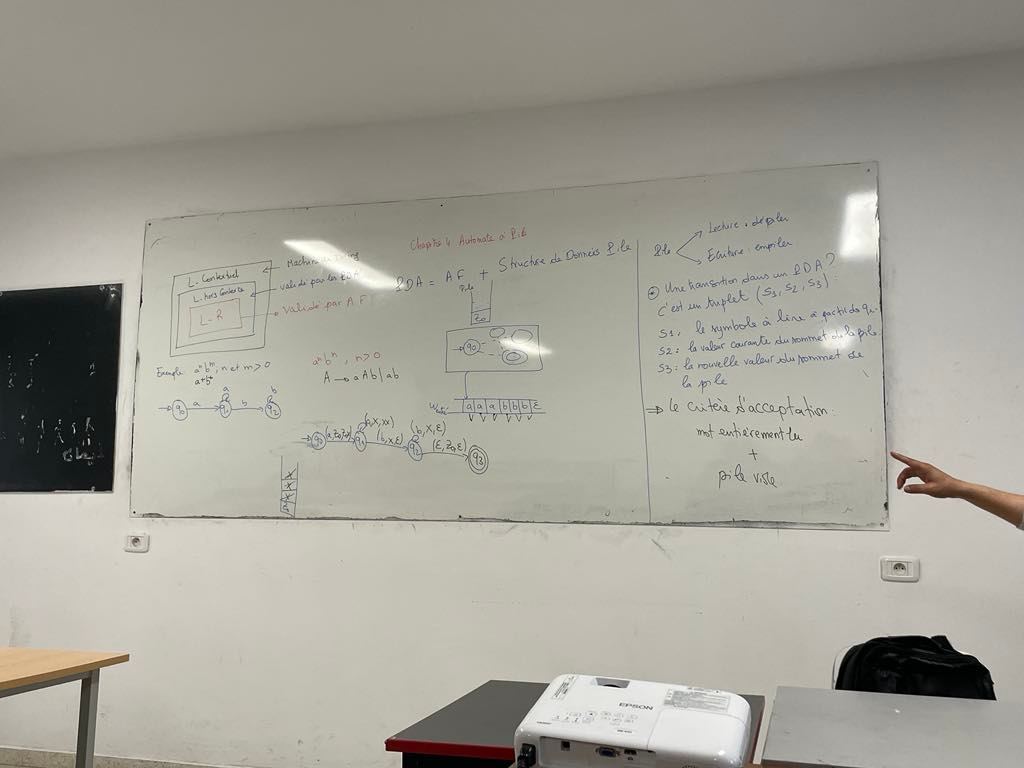 Chapitre 4 Automate à Pile
Machine de Turing
L. Contextuel
validé par les PDA
L. hors Contexte
L-R
Validé par A.F
Exemple: aⁿbᵐ, n et m > 0
a⁺b⁺
q0 a q1 b q2
a
b
PDA = AF + Structure de Données Pile
Pile
Z0
q0
aⁿbⁿ, n>0
A → aAb | ab
a a a b b b ε
q0 (a, Z0, Z0x) q1 (b,x,ε) q2 (ε, Z0, ε) q3
(a,x,xx)
(b,x,ε)
X
X
X
Pile
Lecture: dépiler
Ecriture: empiler
Une transition dans un PDA?
c'est un triplet (S1, S2, S3):
S1: le symbole à lire à partir de
S2: la valeur courante du sommet de la pile
S3: la nouvelle valeur du sommet de
la pile
→ le critère d'acceptation:
mot entièrement lu
+
pile vide
EPSON